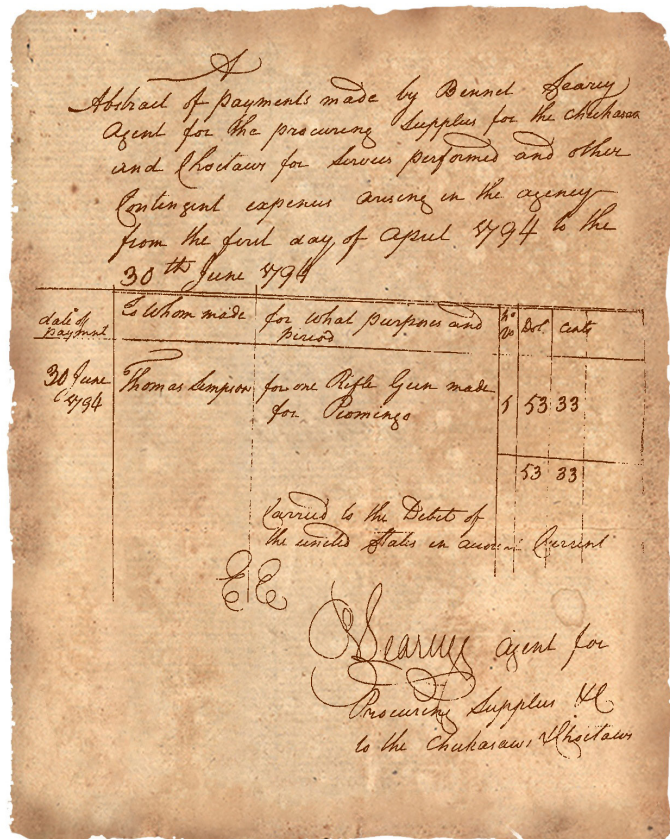 A
Abstract of payments made by Bennet Searcy
Agent for the procuring Supplus for the Chickasaw
and Choctaws for Services performed and other
Contingent expenses arising in the agency
from the first day of April 1794 to the
30th June 1794
date of payment
To Whom made
for what purposes and period
No
Dol
Cents
30 June 1794
Thomas Simpson
for one Rifle Gun made
for Piomingo
5
53
33
53
33
Carried to the Debit of
the united States in account Current
E E
BSearcy agent for
Procuring Supplus &C
to the Chickasaws & Choctaws